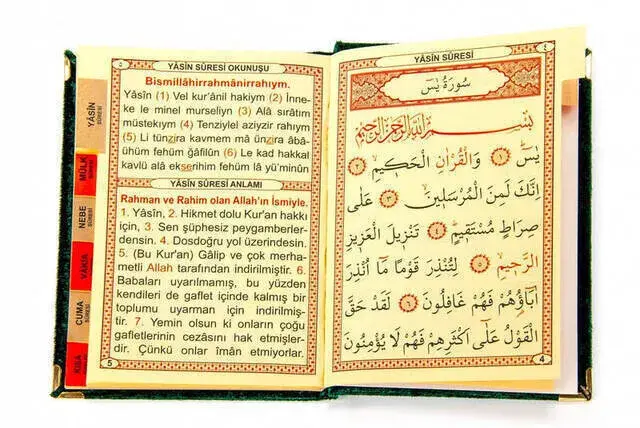 YÂSİN SÛRESİ
٤
سُورَةُ يٰسٓ
بِسْمِ اللّٰهِ الرَّحْمٰنِ الرَّحِيمِ
يٰسٓ ﴿١﴾ وَالْقُرْاٰنِ الْحَكِيمِ ﴿٢﴾
اِنَّكَ لَمِنَ الْمُرْسَلِينَ ﴿٣﴾ عَلٰى
صِرَاطٍ مُسْتَقِيمٍ ﴿٤﴾ تَنْزِيلَ الْعَزِيزِ
الرَّحِيمِ ﴿٥﴾ لِتُنْذِرَ قَوْمًا مَٓا اُنْذِرَ
اٰبَٓاؤُ۬هُمْ فَهُمْ غَافِلُونَ ﴿٦﴾ لَقَدْ حَقَّ
الْقَوْلُ عَلٰٓى اَكْثَرِهِمْ فَهُمْ لَا يُؤْمِنُونَ
4
٥
YÂSİN SÛRESİ OKUNUŞU
Bismillâhirrahmânirrahıym.
Yâsîn (1) Vel kur'ânil hakiym (2) İnne-
ke le minel murseliyn (3) Alâ sırâtım
müstekıym (4) Tenziylel aziyzir rahıym
(5) Li tünzira kavmem mâ ünzira âbâ-
ühüm fehüm ğâfilûn (6) Le kad hakkal
kavlü alâ ekserihim fehüm lâ yü'minûn
YÂSİN SÛRESİ ANLAMI
Rahman ve Rahim olan Allah'ın İsmiyle.
1. Yâsîn, 2. Hikmet dolu Kur'an hakkı
için, 3. Sen şüphesiz peygamberler-
densin. 4. Dosdoğru yol üzerindesin.
5. (Bu Kur'an) Gâlip ve çok merha-
metli Allah tarafından indirilmiştir. 6.
Babaları uyarılmamış, bu yüzden
kendileri de gaflet içinde kalmış bir
toplumu uyarman için indirilmiş-
tir. 7. Yemin olsun ki onların çoğu
gafletlerinin cezasını hak etmişler-
dir. Çünkü onlar îmân etmiyorlar.
5
YÂSİN
SÛRESİ
MÜLK
SÛRESİ
NEBE
SÛRESİ
VAKIA
SÛRESİ
CUMA
SÛRESİ
KISA